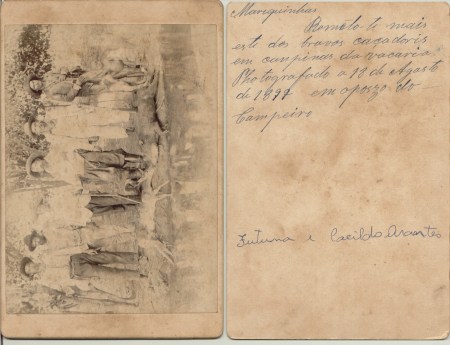 Manguinhas
Remeto-te mais
este dos bravos caçadores
em campinas da vacaria.
Photografado a 18 de Agosto
de 1897 em do
Campeiro
e Cacildo Arantes